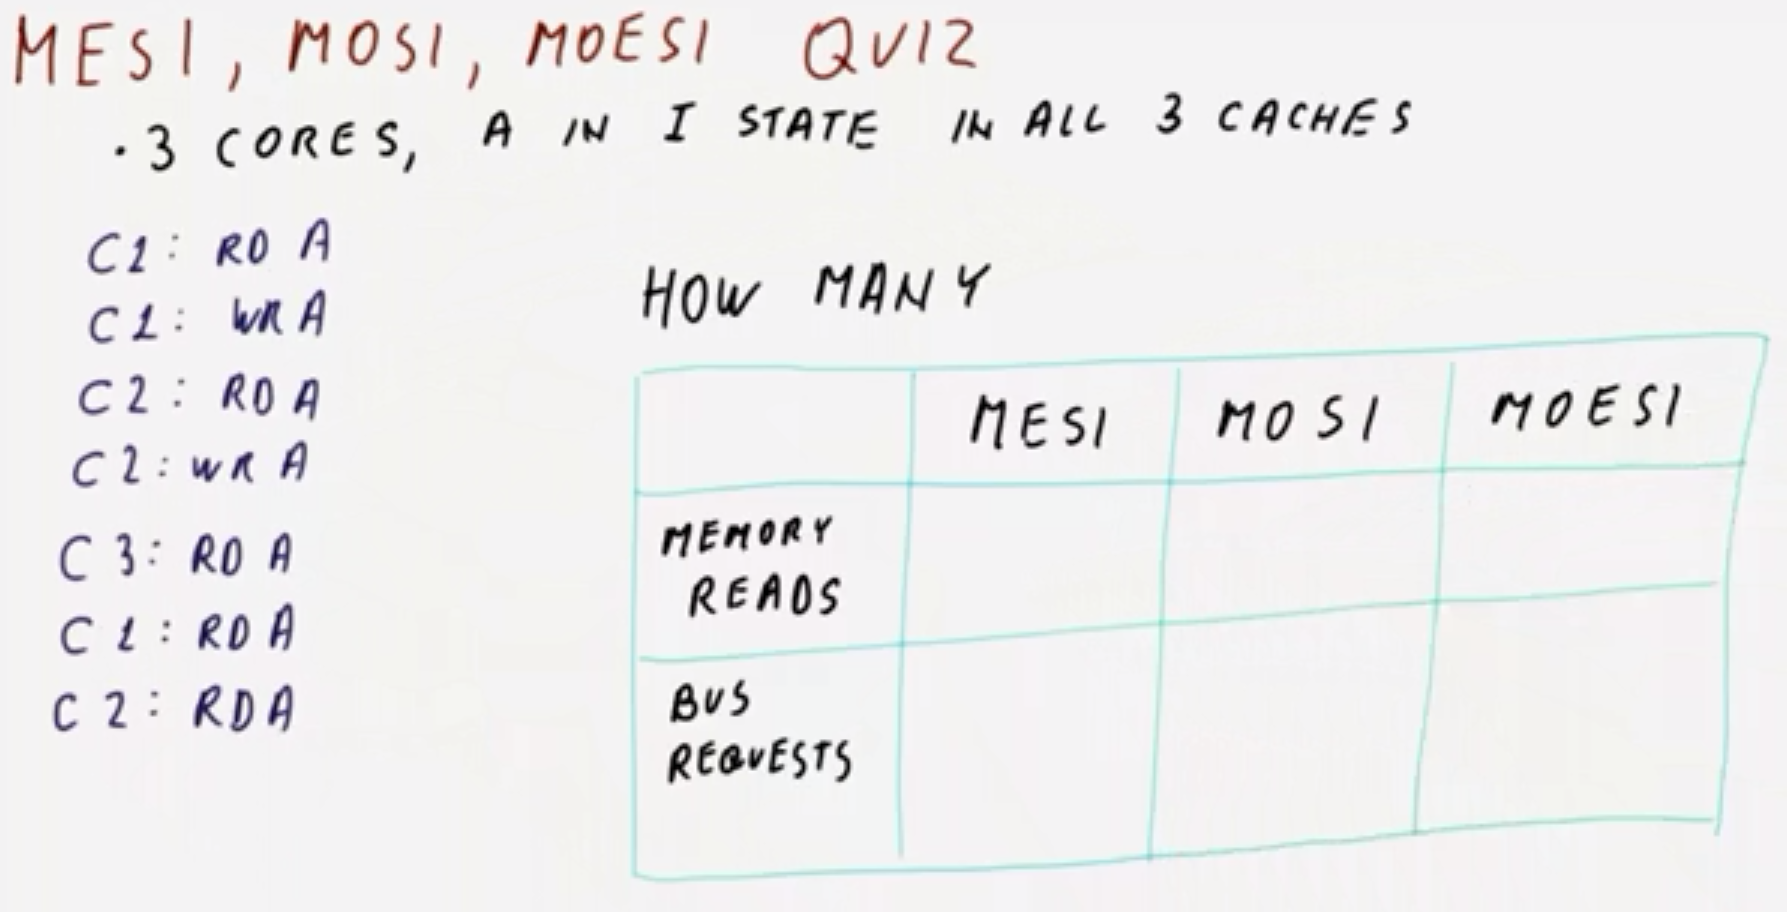 MESI, MOSI, MOESI QUIZ
. 3 CORES, A IN I STATE IN ALL 3 CACHES
C1: RD A
C1: WR A
C2: RD A
C2: WR A
C3: RD A
C1: RD A
C2: RD A
HOW MANY
MESI MOSI MOESI
MEMORY
READS
BUS
REQUESTS